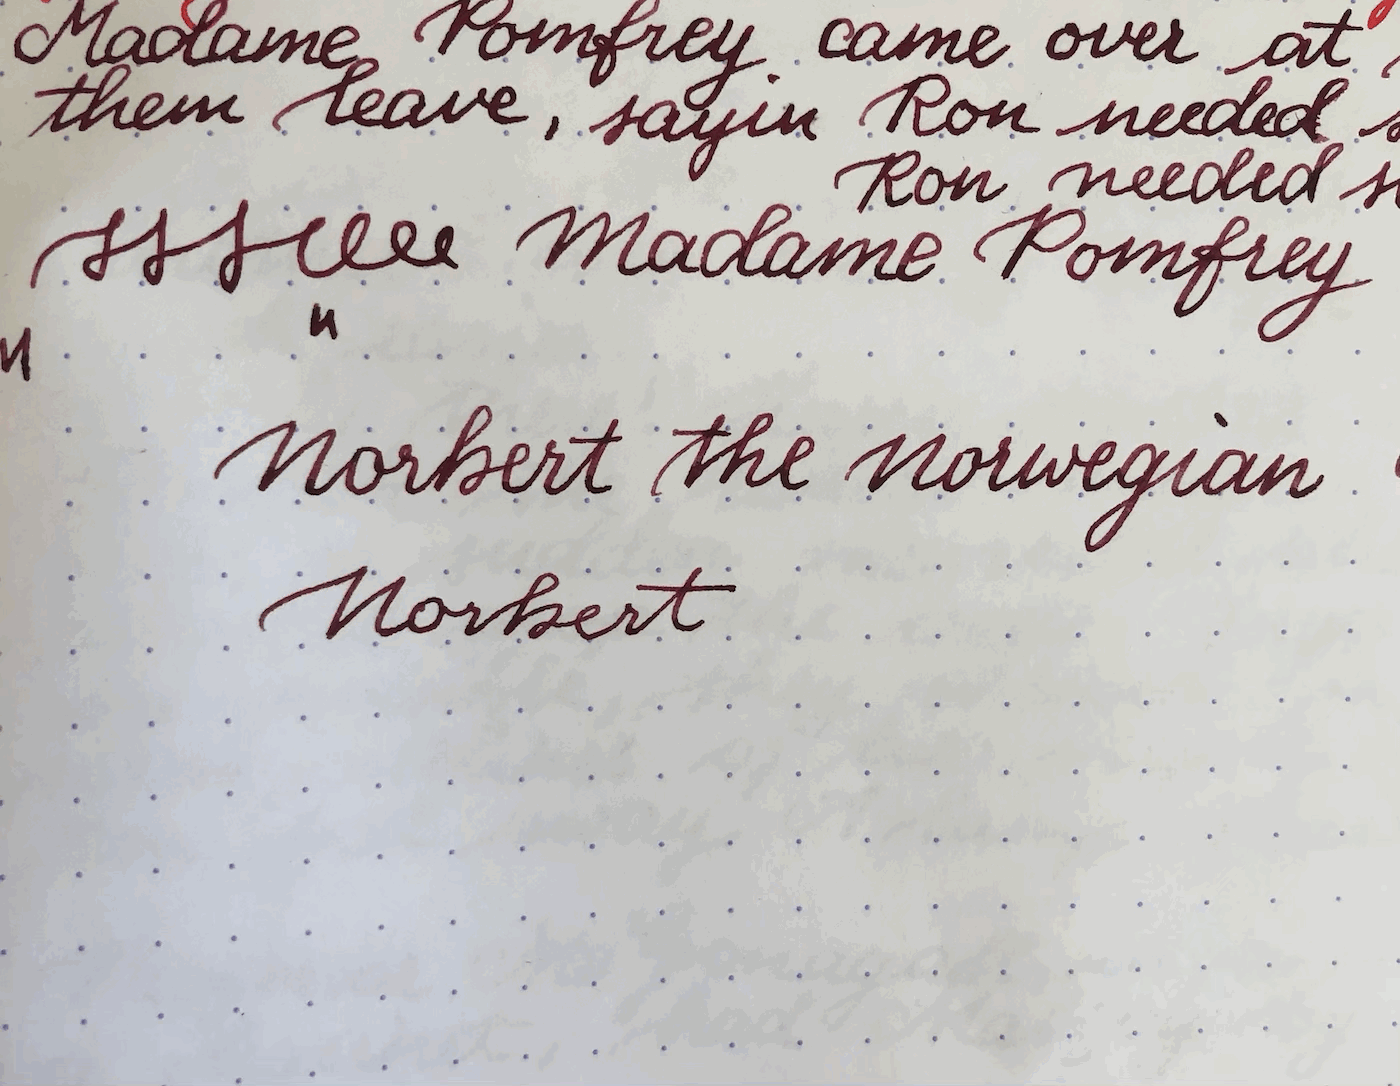 Madame Pomfrey came over at
them leave, sayin Ron needed
Ron needed
sssllee Madame Pomfrey
n
Norbert the Norwegian
Norbert